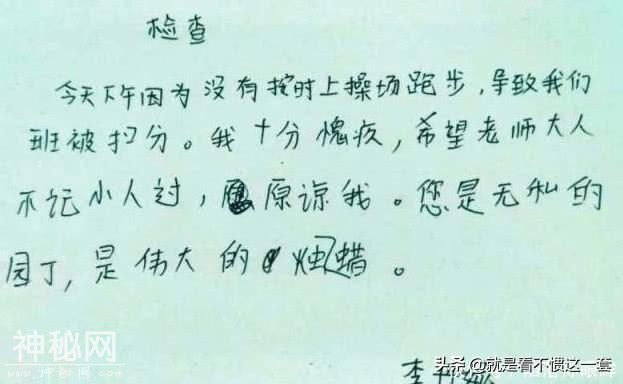 检查
今天下午因为没有按时上操场跑步,导致我们
班被扣分。我十分愧疚,希望老师大人
不记小人过,原谅我。您是无私的
园丁,是伟大的烛蜡。
李
神秘网
头条 @就是看不惯这一套